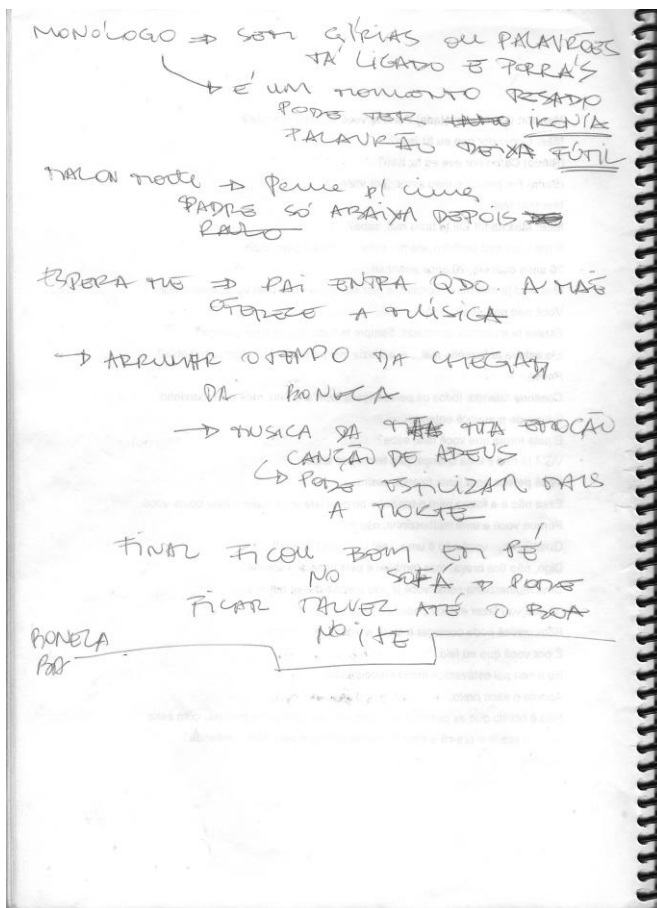 MONÓLOGO ⇒ SEM GÍRIAS OU PALAVRÕES
TÁ LIGADO E PORRA'S
→ É UM MOMENTO PESADO
PODE TER IRONIA
PALAVRÃO DEIXA FÚTIL
MORTE → Perna p/ cima
PADRE SÓ ABAIXA DEPOIS
ESPERA ME ⇒ PAI ENTRA QDO A MÃE
OFERECE A MÚSICA
→ ARRUMAR O TEMPO DA CHEGADA
DA BONECA
→ MUSICA DA MTA EMOÇÃO
CANÇÃO DE ADEUS
↳ PODE ESTILIZAR MAIS
A MORTE
FINAL FICOU BOM EM PÉ
NO SOFA → PODE
FICAR TALVEZ ATÉ O BOA
NOITE
BONECA